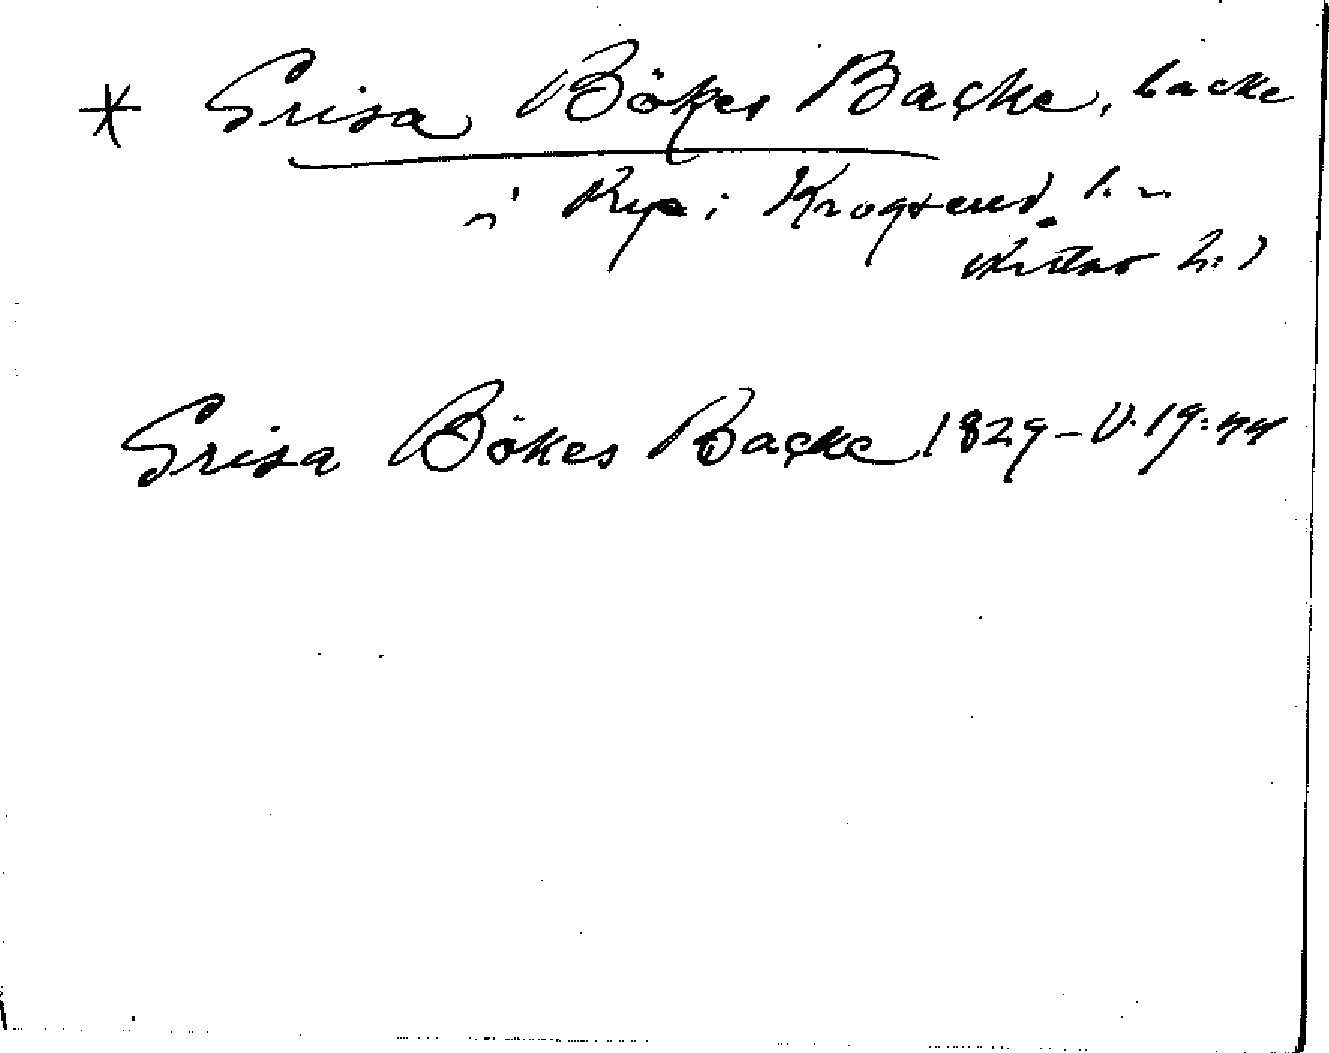 * Grisa Bökes Backe, backe
i Rya i Krogsered
Grisa Bökes Backe 1829 - V. 19:44